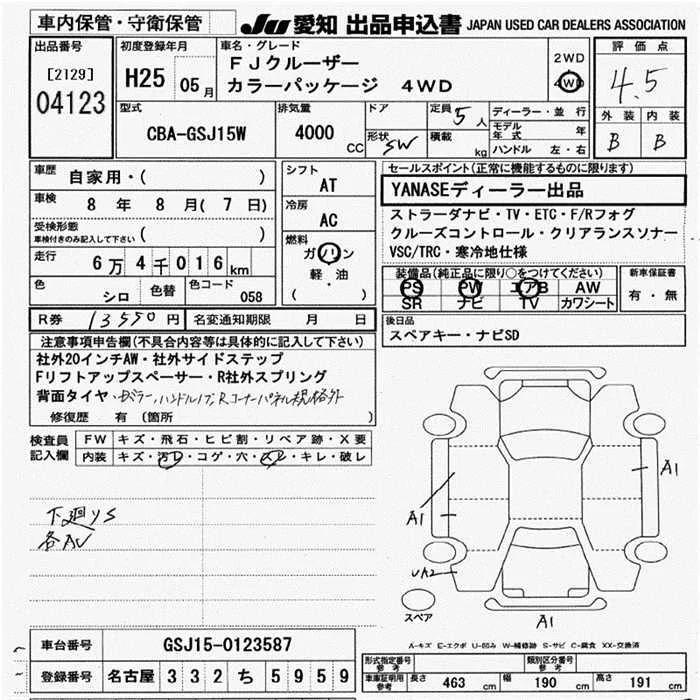 車内保管・守衛保管
JU 愛知 出品申込書 JAPAN USED CAR DEALERS ASSOCIATION
出品番号
[2129]
04123
初度登録年月
H25 05月
車名・グレード
FJクルーザー
カラーパッケージ 4WD
2WD
4WD
評価点
4.5
外装 内装
B B
型式
CBA-GSJ15W
排気量
4000 CC
ドア
形状 SW
定員 5人
積載 kg
ディーラー・並行
モデル年式 年
ハンドル 左・右
車歴 自家用・( )
車検 8年 8月(7日)
受検形態
車検付きのみ記入して下さい ( )
走行 6万4千016km
色 シロ 色替 色コード 058
シフト
AT
冷房
AC
燃料
ガソリン
軽・油
( )
セールスポイント(正常に機能するものに限ります)
YANASEディーラー出品
ストラーダナビ・TV・ETC・F/Rフォグ
クルーズコントロール・クリアランスソナー
VSC/TRC・寒冷地仕様
装備品(純正品に限り○をつけてください)
PS PW エアB AW
SR ナビ TV カワシート
新車保証書
有・無
R券 13550円 名変通知期限 月 日
後日品
スペアキー・ナビSD
注意事項申告欄(不具合内容等は具体的に記入して下さい)
社外20インチAW・社外サイドステップ
Fリフトアップスペーサー・R社外スプリング
背面タイヤ・
修復歴 有(箇所 )
検査員記入欄
FW キズ・飛石・ヒビ割・リペア跡・X要
内装 キズ・汚レ・コゲ・穴・スレ・キレ・破レ
下廻りS
各AU
A1
A1
UA2
A1
スペア
A-キズ E-エクボ U-凹み W-補修跡 S-サビ C-腐食 XX-交換済
車台番号 GSJ15-0123587
登録番号 名古屋 332 ち 5959
形式指定番号 参考
類別区分番号 参考
車庫証明用参考 長さ 463 cm 幅 190 cm 高さ 191 cm